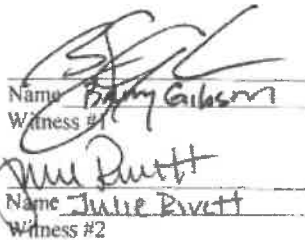 Name Barry Gibson
Witness #1
Name Julie Rivett
Witness #2